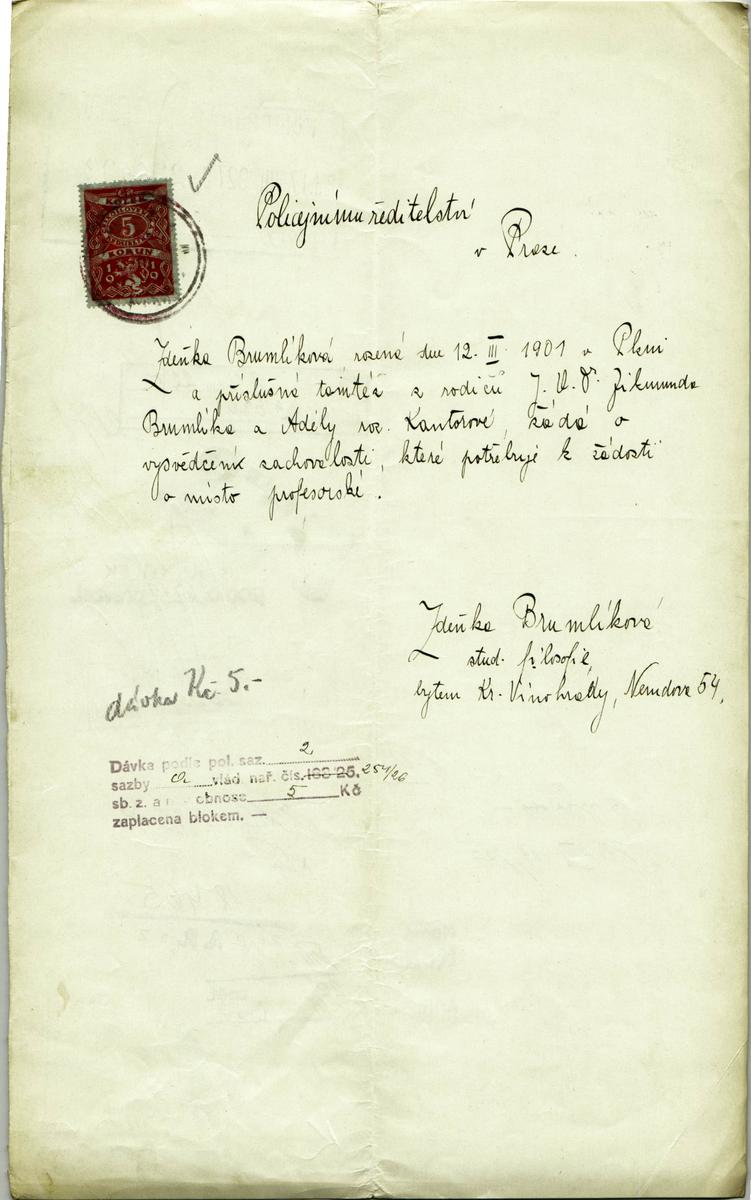 KOLEK
5
KORUN
1919
Policejnímu ředitelství
v Praze.
Zdeňka Brumlíková rozená dne 12. III. 1901 v Plzni
a příslušná tamtéž z rodičů J. U. Dr. Zikmunda
Brumlíka a Adély roz. Kantorové, žádá o
vysvědčení zachovalosti, které potřebuje k žádosti
o místo profesorské.
Zdeňka Brumlíková
stud. filosofie,
bytem Kr. Vinohrady, Nerudova 54,
dávka Kč 5.-
Dávka podle pol. saz. 2
sazby a vlád. nař. čís. 166/25. 254/26
sb. z. a n. v obnose 5 Kč
zaplacena blokem. —